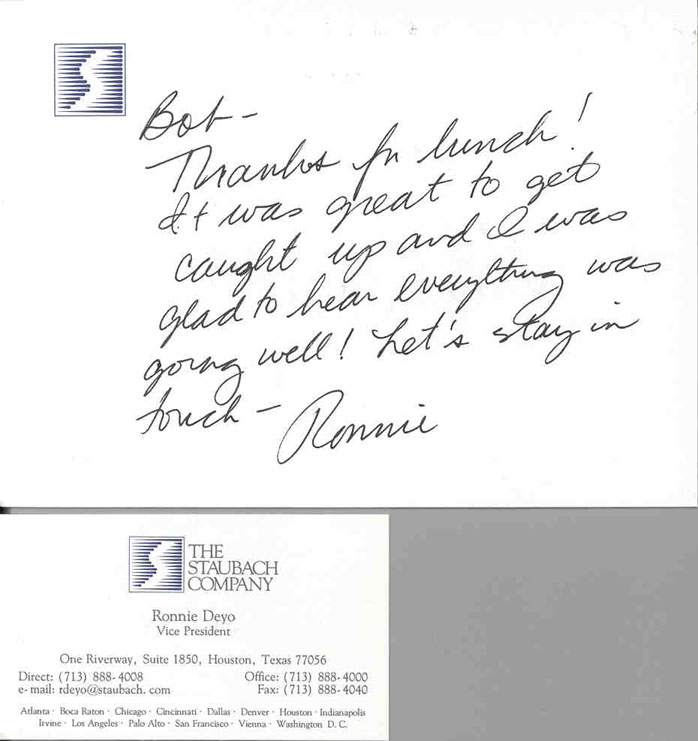 Bob-
Thanks for lunch!
It was great to get
caught up and I was
glad to hear everything was
going well! Let's stay in
touch - Ronnie
THE
STAUBACH
COMPANY
Ronnie Deyo
Vice President
One Riverway, Suite 1850, Houston, Texas 77056
Direct: (713) 888-4008 Office: (713) 888-4000
e-mail: rdeyo@staubach. com Fax: (713) 888-4040
Atlanta · Boca Raton · Chicago · Cincinnati · Dallas · Denver · Houston · Indianapolis
Irvine · Los Angeles · Palo Alto · San Francisco · Vienna · Washington D. C.